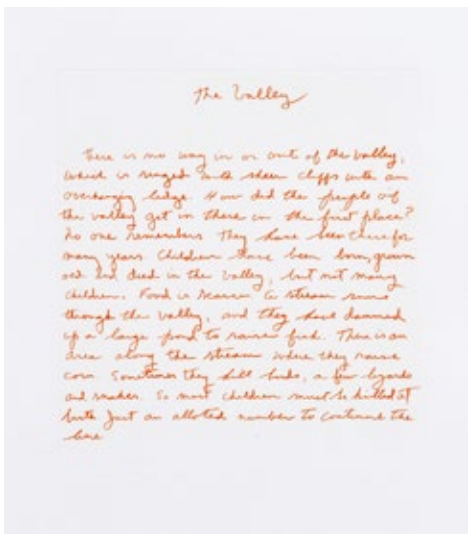 The Valley
There is no way in or out of the valley,
which is ringed with sheer cliffs with an
overhanging ledge. How did the people of
the valley get in there in the first place?
No one remembers. They have been there for
many years. Children have been born, grown
old and died in the valley, but not many
children. Food is scarce. A stream runs
through the valley, and they have dammed
up a large pond to raise fish. There is an
area along the stream where they raise
corn. Sometimes they kill birds, a few lizards
and snakes. So most children must be killed at
birth. Just an alloted number to continue the
line